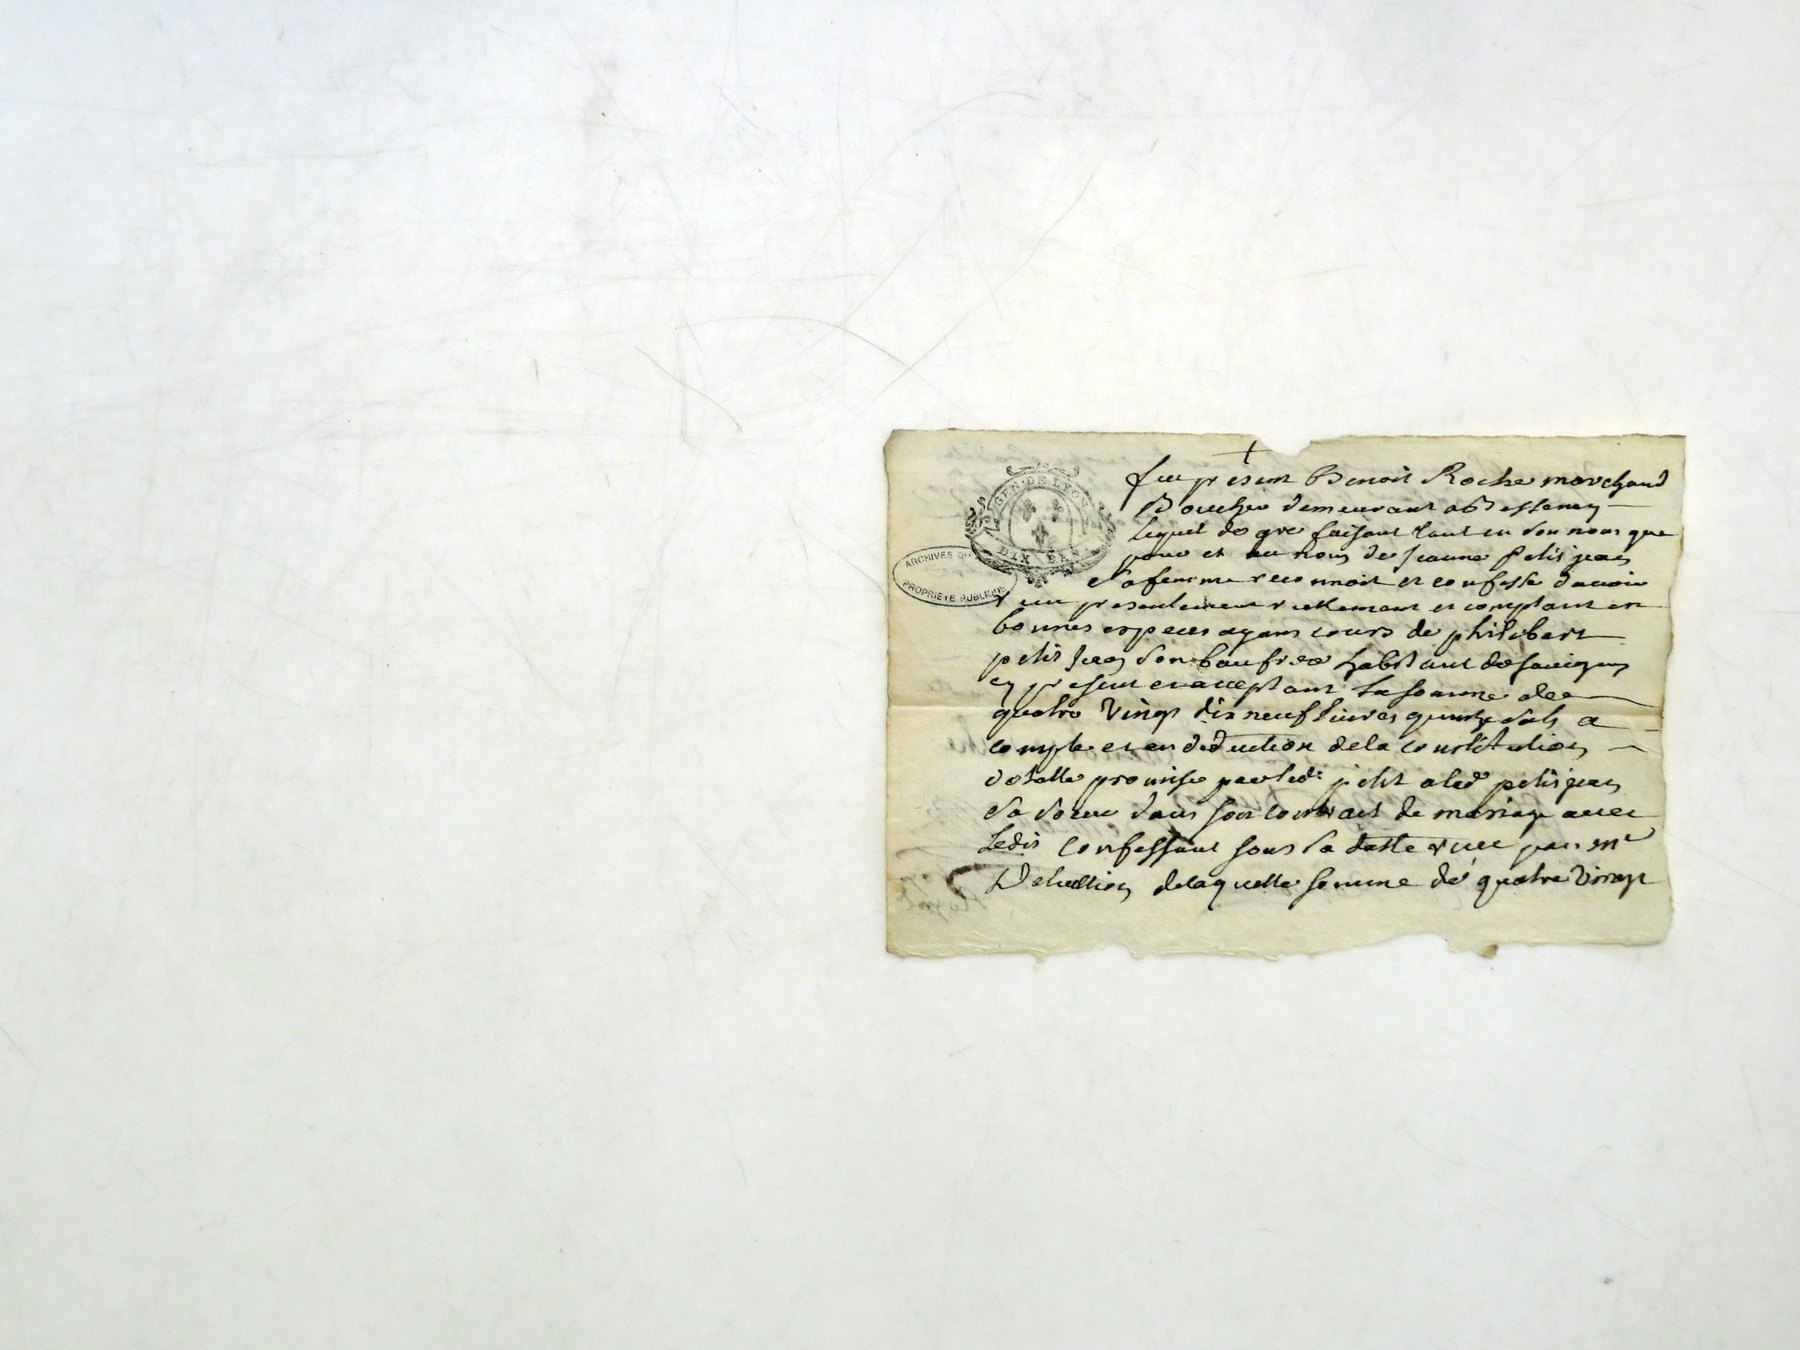 +
GEN. DE LYON
DIX
ARCHIVES DU
PROPRIETE PUBLIQUE
fut present Benoit Roche marchand
Boucher demeurant a Bessenay
Lequel de gre faisant tant en son nom que
pour et au nom de Jeanne petit jean
sa femme reconnoit et confesse davoir
receu presentement reellement et comptant en
bonnes especes ayant cours de philibert
petit Jean son baufrere habitant de savigny
cy present et acceptant la somme de
quatre vingt dix neuf livres quinze sols a
compte et en deduction de la constitution
dotalle promise par led petit a lad petit jean
sa soeur dans son contract de mariage avec
Ledit confessant sous sa datte receu par me
delaquelle somme de quatre vingt